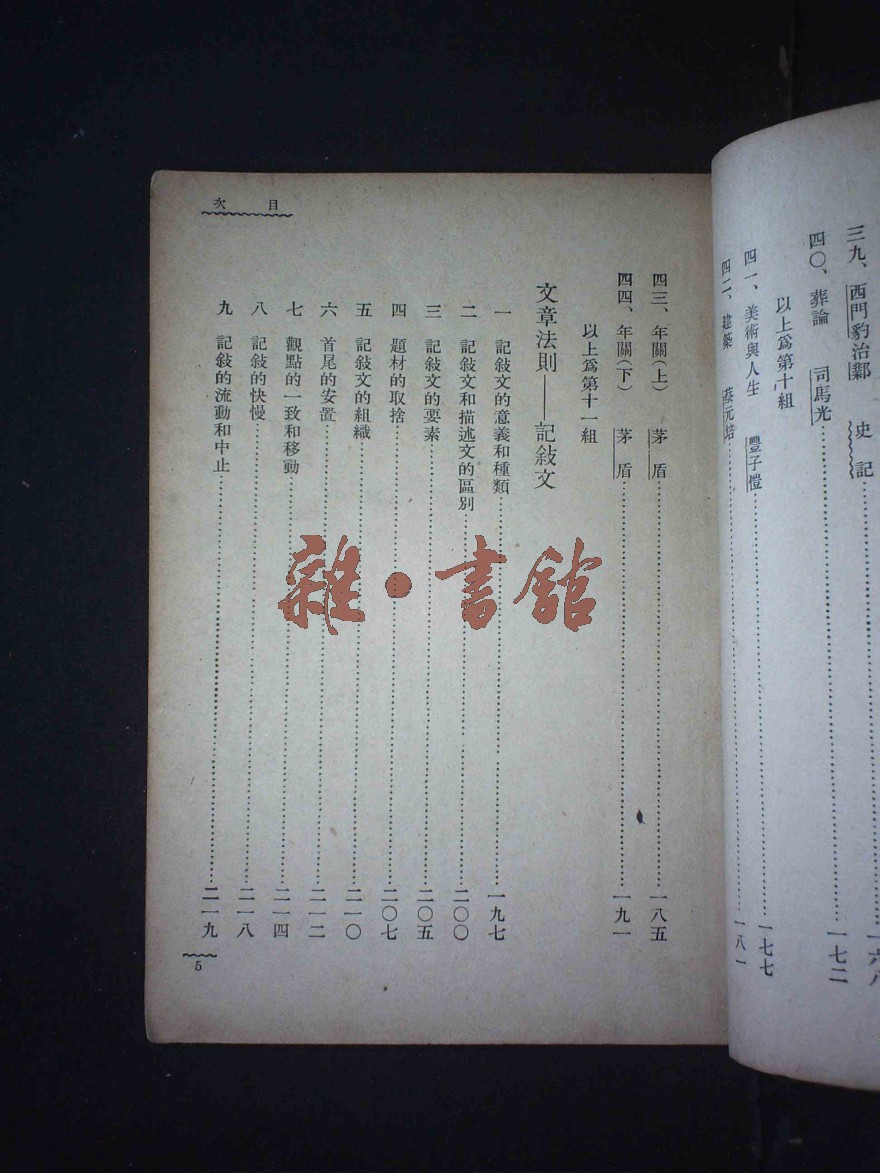 三九、西門豹治鄴 史記……一六八
四〇、葬論 司馬光……一七二
以上爲第十組
四一、美術與人生 豐子愷……一七七
四二、建築 蔡元培……一八一
四三、年關(上) 茅盾……一八五
四四、年關(下) 茅盾……一九一
以上爲第十一組
文章法則——記敍文
一 記敍文的意義和種類……一九七
二 記敍文和描述文的區別……二〇〇
三 記敍文的要素……二〇五
四 題材的取捨……二〇七
五 記敍文的組織……二一〇
六 首尾的安置……二一二
七 觀點的一致和移動……二一四
八 記敍的快慢……二一八
九 記敍的流動和中止……二一九
目次
5
雜·書館